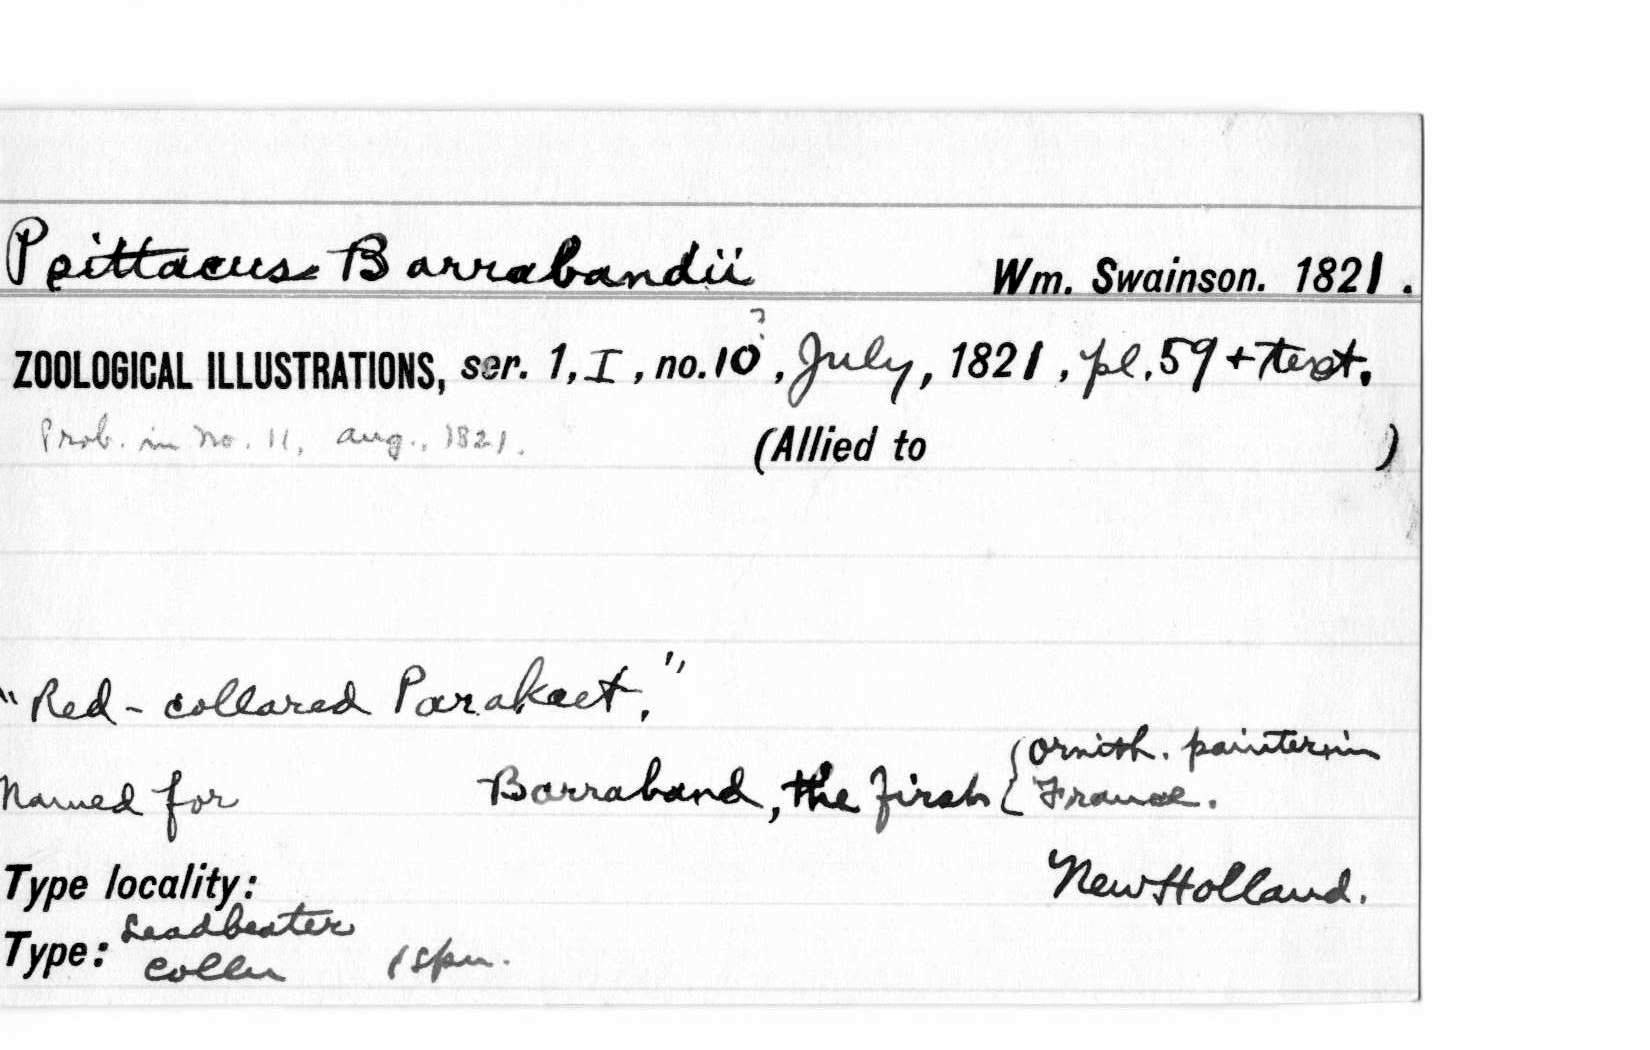 Psittacus Barrabandii Wm. Swainson. 1821.
?
ZOOLOGICAL ILLUSTRATIONS, ser. 1, I, no. 10, July, 1821, pl. 59 + text.
Prob. in no. 11, Aug., 1821.
(Allied to )
"Red-collared Parakeet."
Named for Barraband, the first { ornith. painter in
France.
Type locality: New Holland.
Type: Leadbeater
Colln 1 spn.